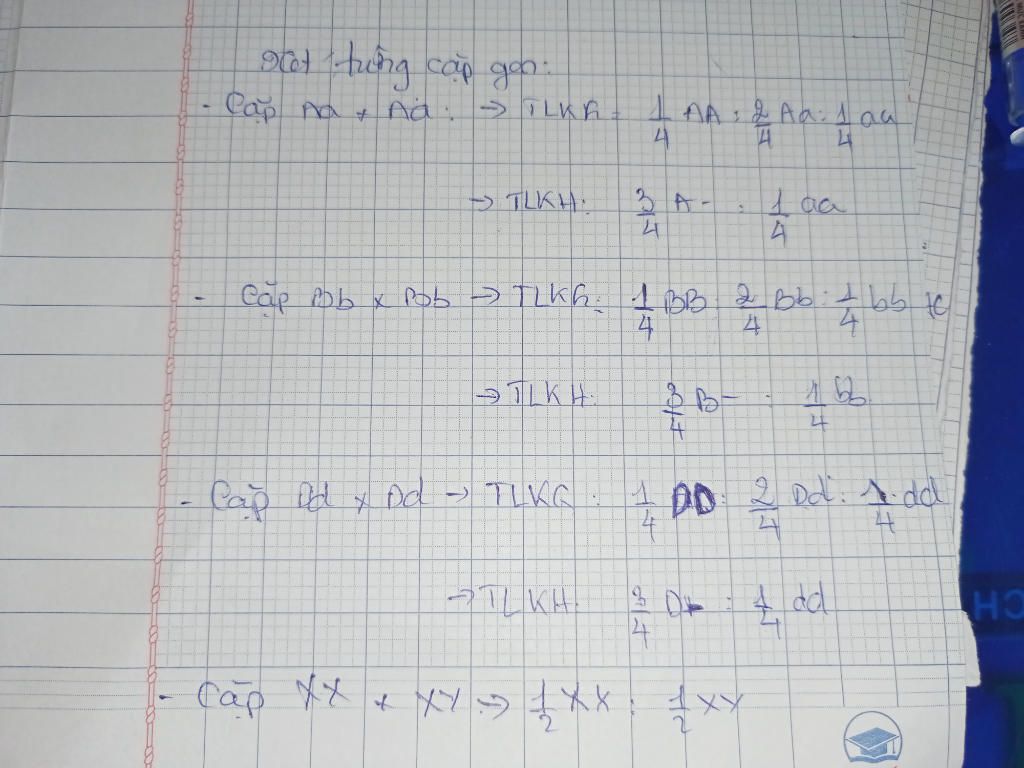 Xét từng cặp gen:
- Cặp Aa x Aa: → TLKG: 1/4 AA : 2/4 Aa : 1/4 aa
→ TLKH: 3/4 A- : 1/4 aa
- Cặp Bb x Bb → TLKG: 1/4 BB : 2/4 Bb : 1/4 bb
→ TLKH: 3/4 B- : 1/4 bb
- Cặp Dd x Dd → TLKG: 1/4 DD : 2/4 Dd : 1/4 dd
→ TLKH: 3/4 D- : 1/4 dd
- Cặp XX x XY → 1/2 XX : 1/2 XY
CH